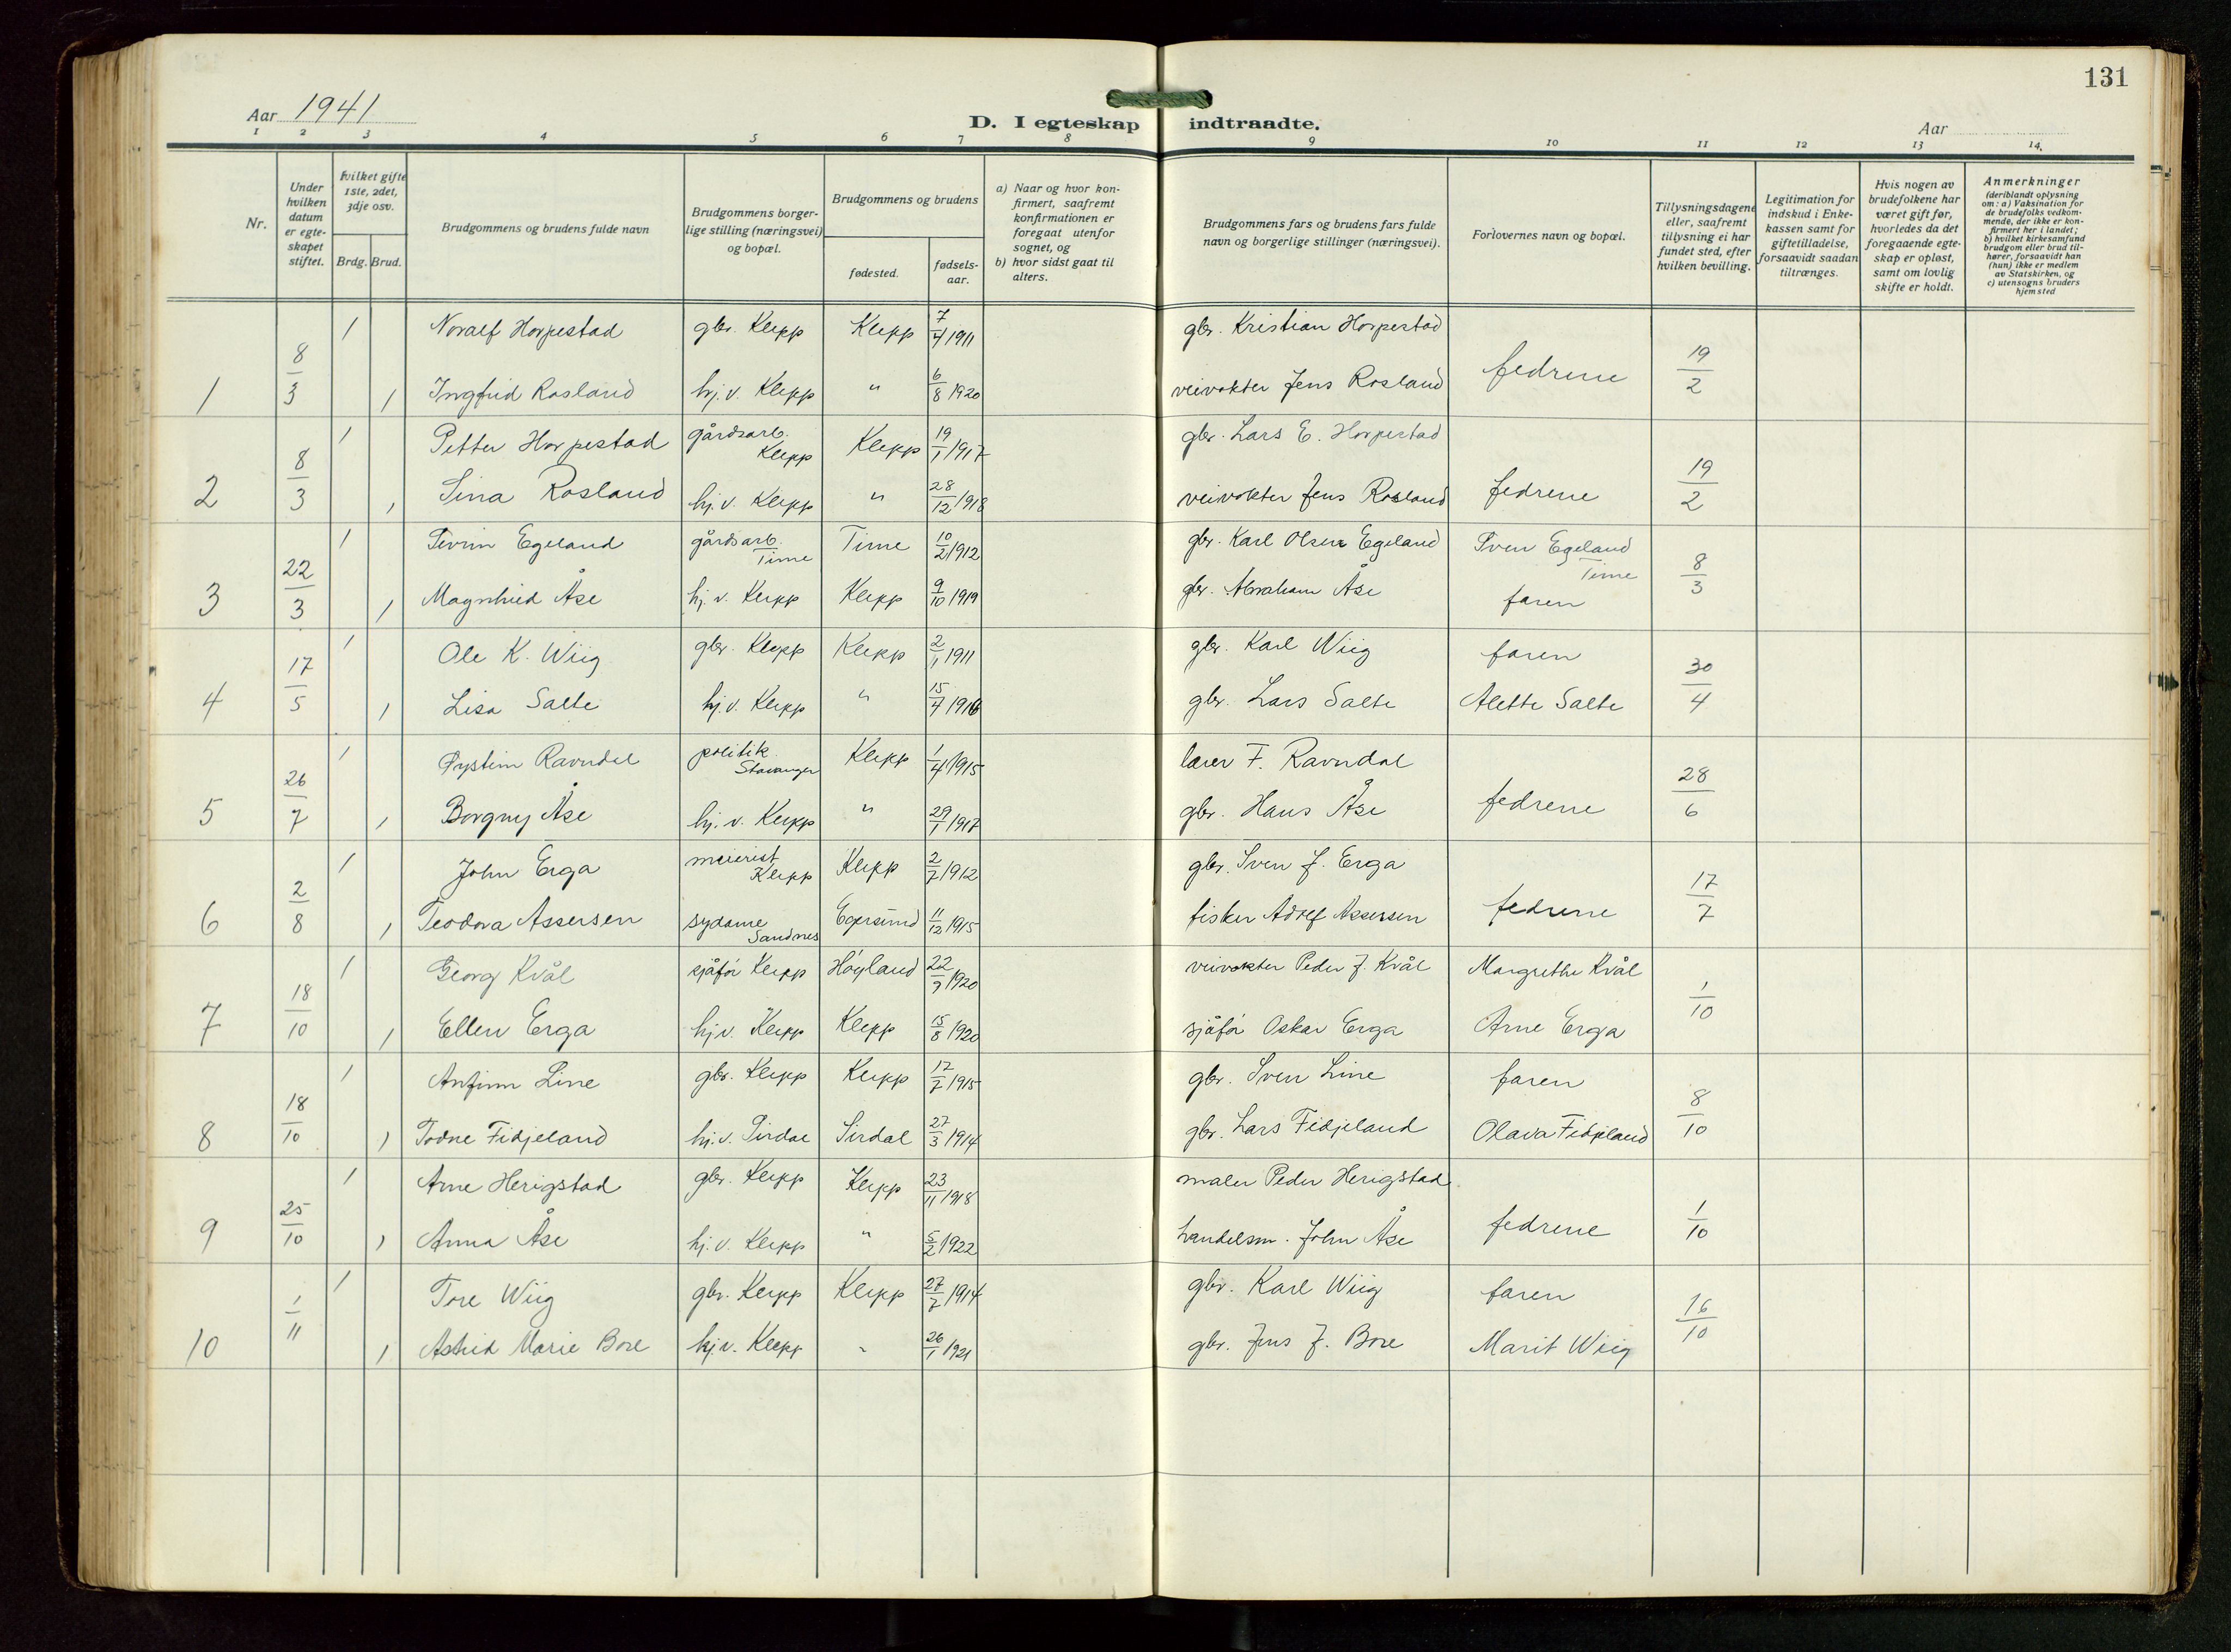 131
Aar 1941
D. I egteskap indtraadte.
Aar
1 2 3 4 5 6 7 8 9 10 11 12 13 14.
Nr.
Under hvilken datum er egte-skapet stiftet.
hvilket gifte 1ste, 2det, 3dje osv.
Brdg. Brud.
Brudgommens og brudens fulde navn
Brudgommens borger-lige stilling (næringsvei) og bopæl.
Brudgommens og brudens
fødested.
fødsels-aar.
a) Naar og hvor kon-firmert, saafremt konfirmationen er foregaat utenfor sognet, og
b) hvor sidst gaat til alters.
Brudgommens fars og brudens fars fulde navn og borgerlige stillinger (næringsvei).
Forlovernes navn og bopæl.
Tillysningsdagene eller, saafremt tillysning ei har fundet sted, efter hvilken bevilling.
Legitimation for indskud i Enke-kassen samt for giftetilladelse, forsaavidt saadan tiltrænges.
Hvis nogen av brudefolkene har været gift før, hvorledes da det foregaaende egte-skap er opløst, samt om lovlig skifte er holdt.
Anmerkninger (deriblandt oplysning om: a) Vaksination for de brudefolks vedkom-mende, der ikke er kon-firmert her i landet; b) hvilket kirkesamfund brudgom eller brud til-hører, forsaavidt han (hun) ikke er medlem av Statskirken, og c) utensogns bruders hjemsted
1 8/3 1 Noralf Horpestad gbr. Klepp Klepp 7/4 1911 gbr. Kristian Horpestad fedrene 19/2
1 Ingfrid Rosland hj.v. Klepp " 6/8 1920 veivokter Jens Rosland
2 8/3 1 Petter Horpestad gårdsarb. Klepp Klepp 19/1 1917 gbr. Lars E. Horpestad fedrene 19/2
1 Sina Rosland hj.v. Klepp " 28/12 1918 veivokter Jens Rosland
3 22/3 1 Egeland gårdsarb. Time Time 10/2 1912 gbr. Karl Olsen Egeland Sven Egeland Time 8/3
1 Magnhild Åse hj.v. Klepp Klepp 9/10 1919 gbr. Abraham Åse faren
4 17/5 1 Ole K. Wiig gbr. Klepp Klepp 2/1 1911 gbr. Karl Wiig faren 30/4
1 Lisa Salte hj.v. Klepp " 15/7 1916 gbr. Lars Salte Alette Salte
5 26/7 1 Øystein Ravndal politik. Stavanger Klepp 1/4 1915 lærer F. Ravndal fedrene 28/6
1 Borgny Åse hj.v. Klepp " 29/1 1917 gbr. Hans Åse
6 2/8 1 John Erga meierist Klepp Klepp 2/7 1912 gbr. Sven J. Erga fedrene 17/7
1 Teodora Assersen sydame Sandnes Egersund 11/12 1915 fisker Adolf Assersen
7 18/10 1 Georg Kvål sjåfør Klepp Høyland 22/9 1920 veivokter Peder J. Kvål Margrethe Kvål 1/10
1 Ellen Erga hj.v. Klepp Klepp 15/8 1920 sjåfør Oskar Erga Arne Erga
8 18/10 1 Anfinn Line gbr. Klepp Klepp 17/7 1915 gbr. Sven Line faren 8/10
1 Todne Fidjeland hj.v. Sirdal Sirdal 27/3 1914 gbr. Lars Fidjeland Olava Fidjeland
9 25/10 1 Arne Herigstad gbr. Klepp Klepp 23/11 1918 maler Peder Herigstad fedrene 1/10
1 Anna Åse hj.v. Klepp " 5/2 1922 handelsm. John Åse
10 1/11 1 Tore Wiig gbr. Klepp Klepp 27/7 1914 gbr. Karl Wiig faren 16/10
1 Astrid Marie Bore hj.v. Klepp " 26/1 1921 gbr. Jens J. Bore Marit Wiig